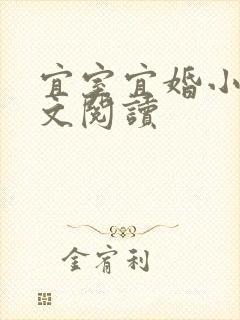 宜室宜婚小
文閱讀
金宥利